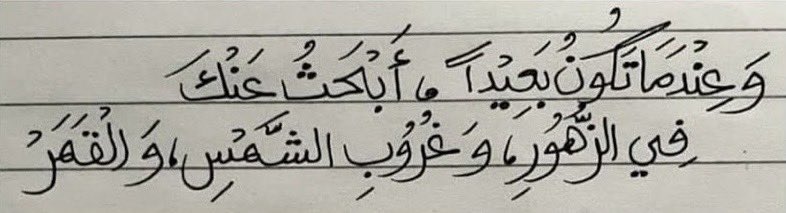 وَعِنْدَمَا تَكُونُ بَعِيْداً، أَبْحَثُ عَنْكَ
فِي الزُّهُورِ، وَغُرُوبِ الشَّمْسِ، وَالْقَمَرْ